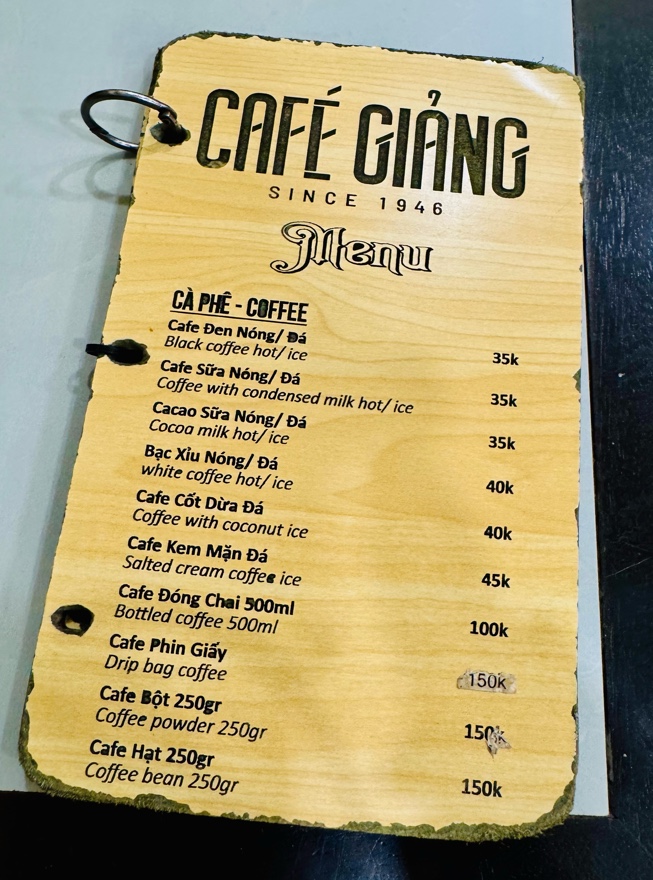 CAFÉ GIẢNG
SINCE 1946
Menu
CÀ PHÊ - COFFEE
Cafe Đen Nóng/ Đá
Black coffee hot/ ice 35k
Cafe Sữa Nóng/ Đá
Coffee with condensed milk hot/ ice 35k
Cacao Sữa Nóng/ Đá
Cocoa milk hot/ ice 35k
Bạc Xỉu Nóng/ Đá
white coffee hot/ ice 40k
Cafe Cốt Dừa Đá
Coffee with coconut ice 40k
Cafe Kem Mặn Đá
Salted cream coffee ice 45k
Cafe Đóng Chai 500ml
Bottled coffee 500ml 100k
Cafe Phin Giấy
Drip bag coffee 150k
Cafe Bột 250gr
Coffee powder 250gr 150k
Cafe Hạt 250gr
Coffee bean 250gr 150k